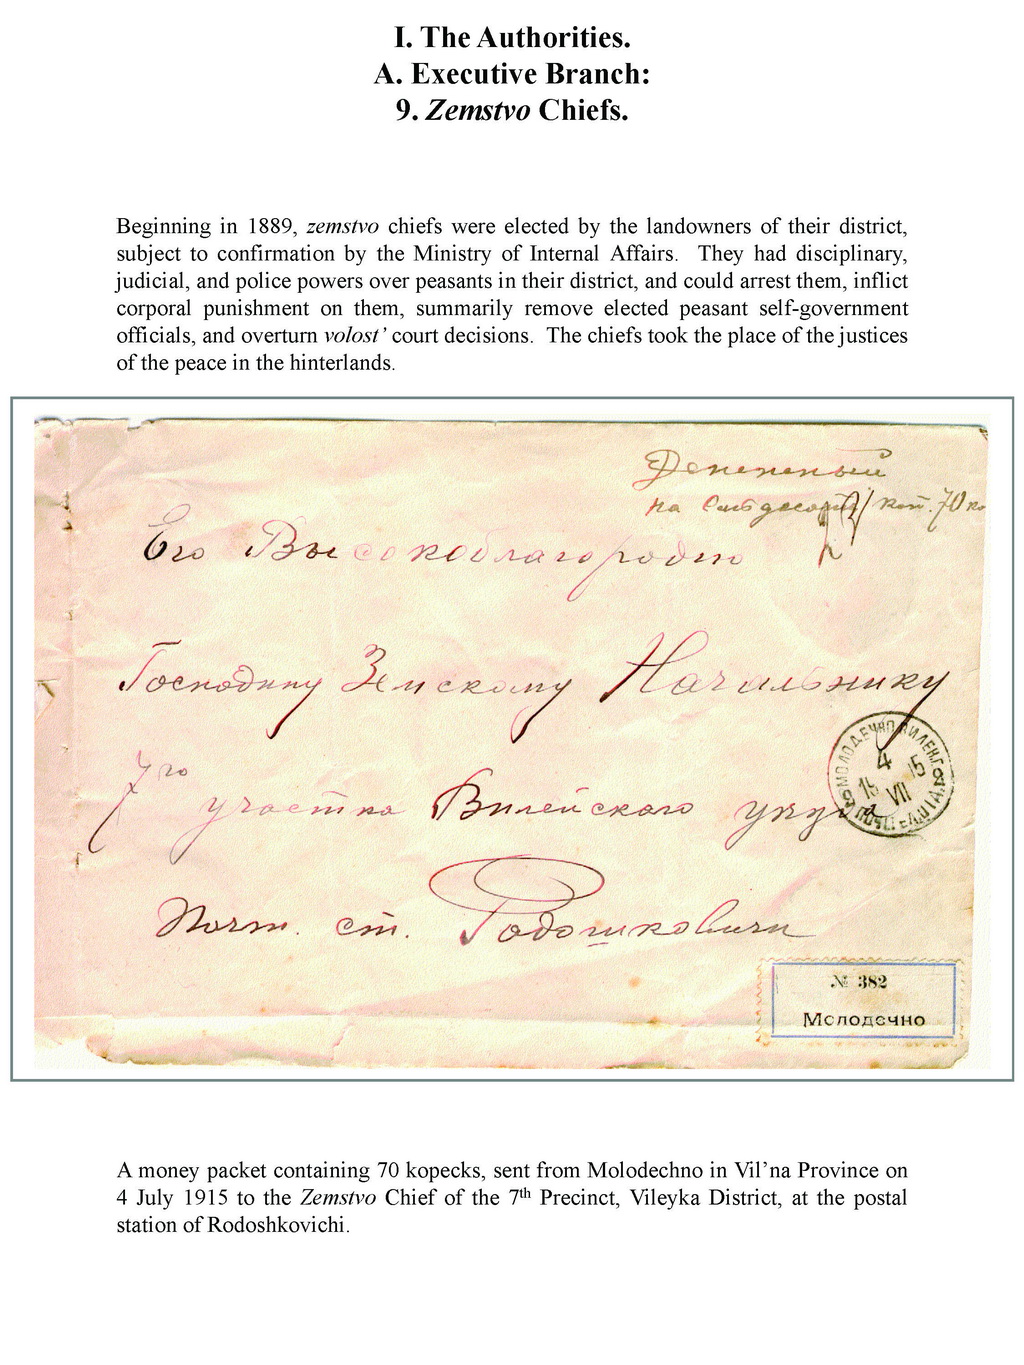 I. The Authorities.
A. Executive Branch:
9. Zemstvo Chiefs.
Beginning in 1889, zemstvo chiefs were elected by the landowners of their district,
subject to confirmation by the Ministry of Internal Affairs. They had disciplinary,
judicial, and police powers over peasants in their district, and could arrest them, inflict
corporal punishment on them, summarily remove elected peasant self-government
officials, and overturn volost’ court decisions. The chiefs took the place of the justices
of the peace in the hinterlands.
Денежный
на Семьдесятъ коп. 70 ко
Его Высокоблагородію
Господину Земскому Начальнику
7го участка Вилейскаго уѣзда
МОЛОДЕЧНО ВИЛЕН.Г.
4
15 15
VII
Почт. ст. Радошковичи
№ 382
Молодечно
A money packet containing 70 kopecks, sent from Molodechno in Vil’na Province on
4 July 1915 to the Zemstvo Chief of the 7th Precinct, Vileyka District, at the postal
station of Rodoshkovichi.